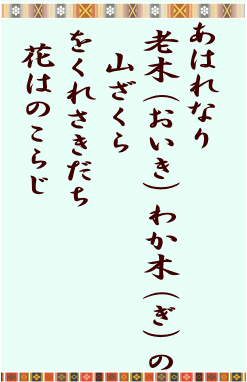 あはれなり
老木（おいき）わか木（ぎ）の
山ざくら
をくれさきだち
花はのこらじ